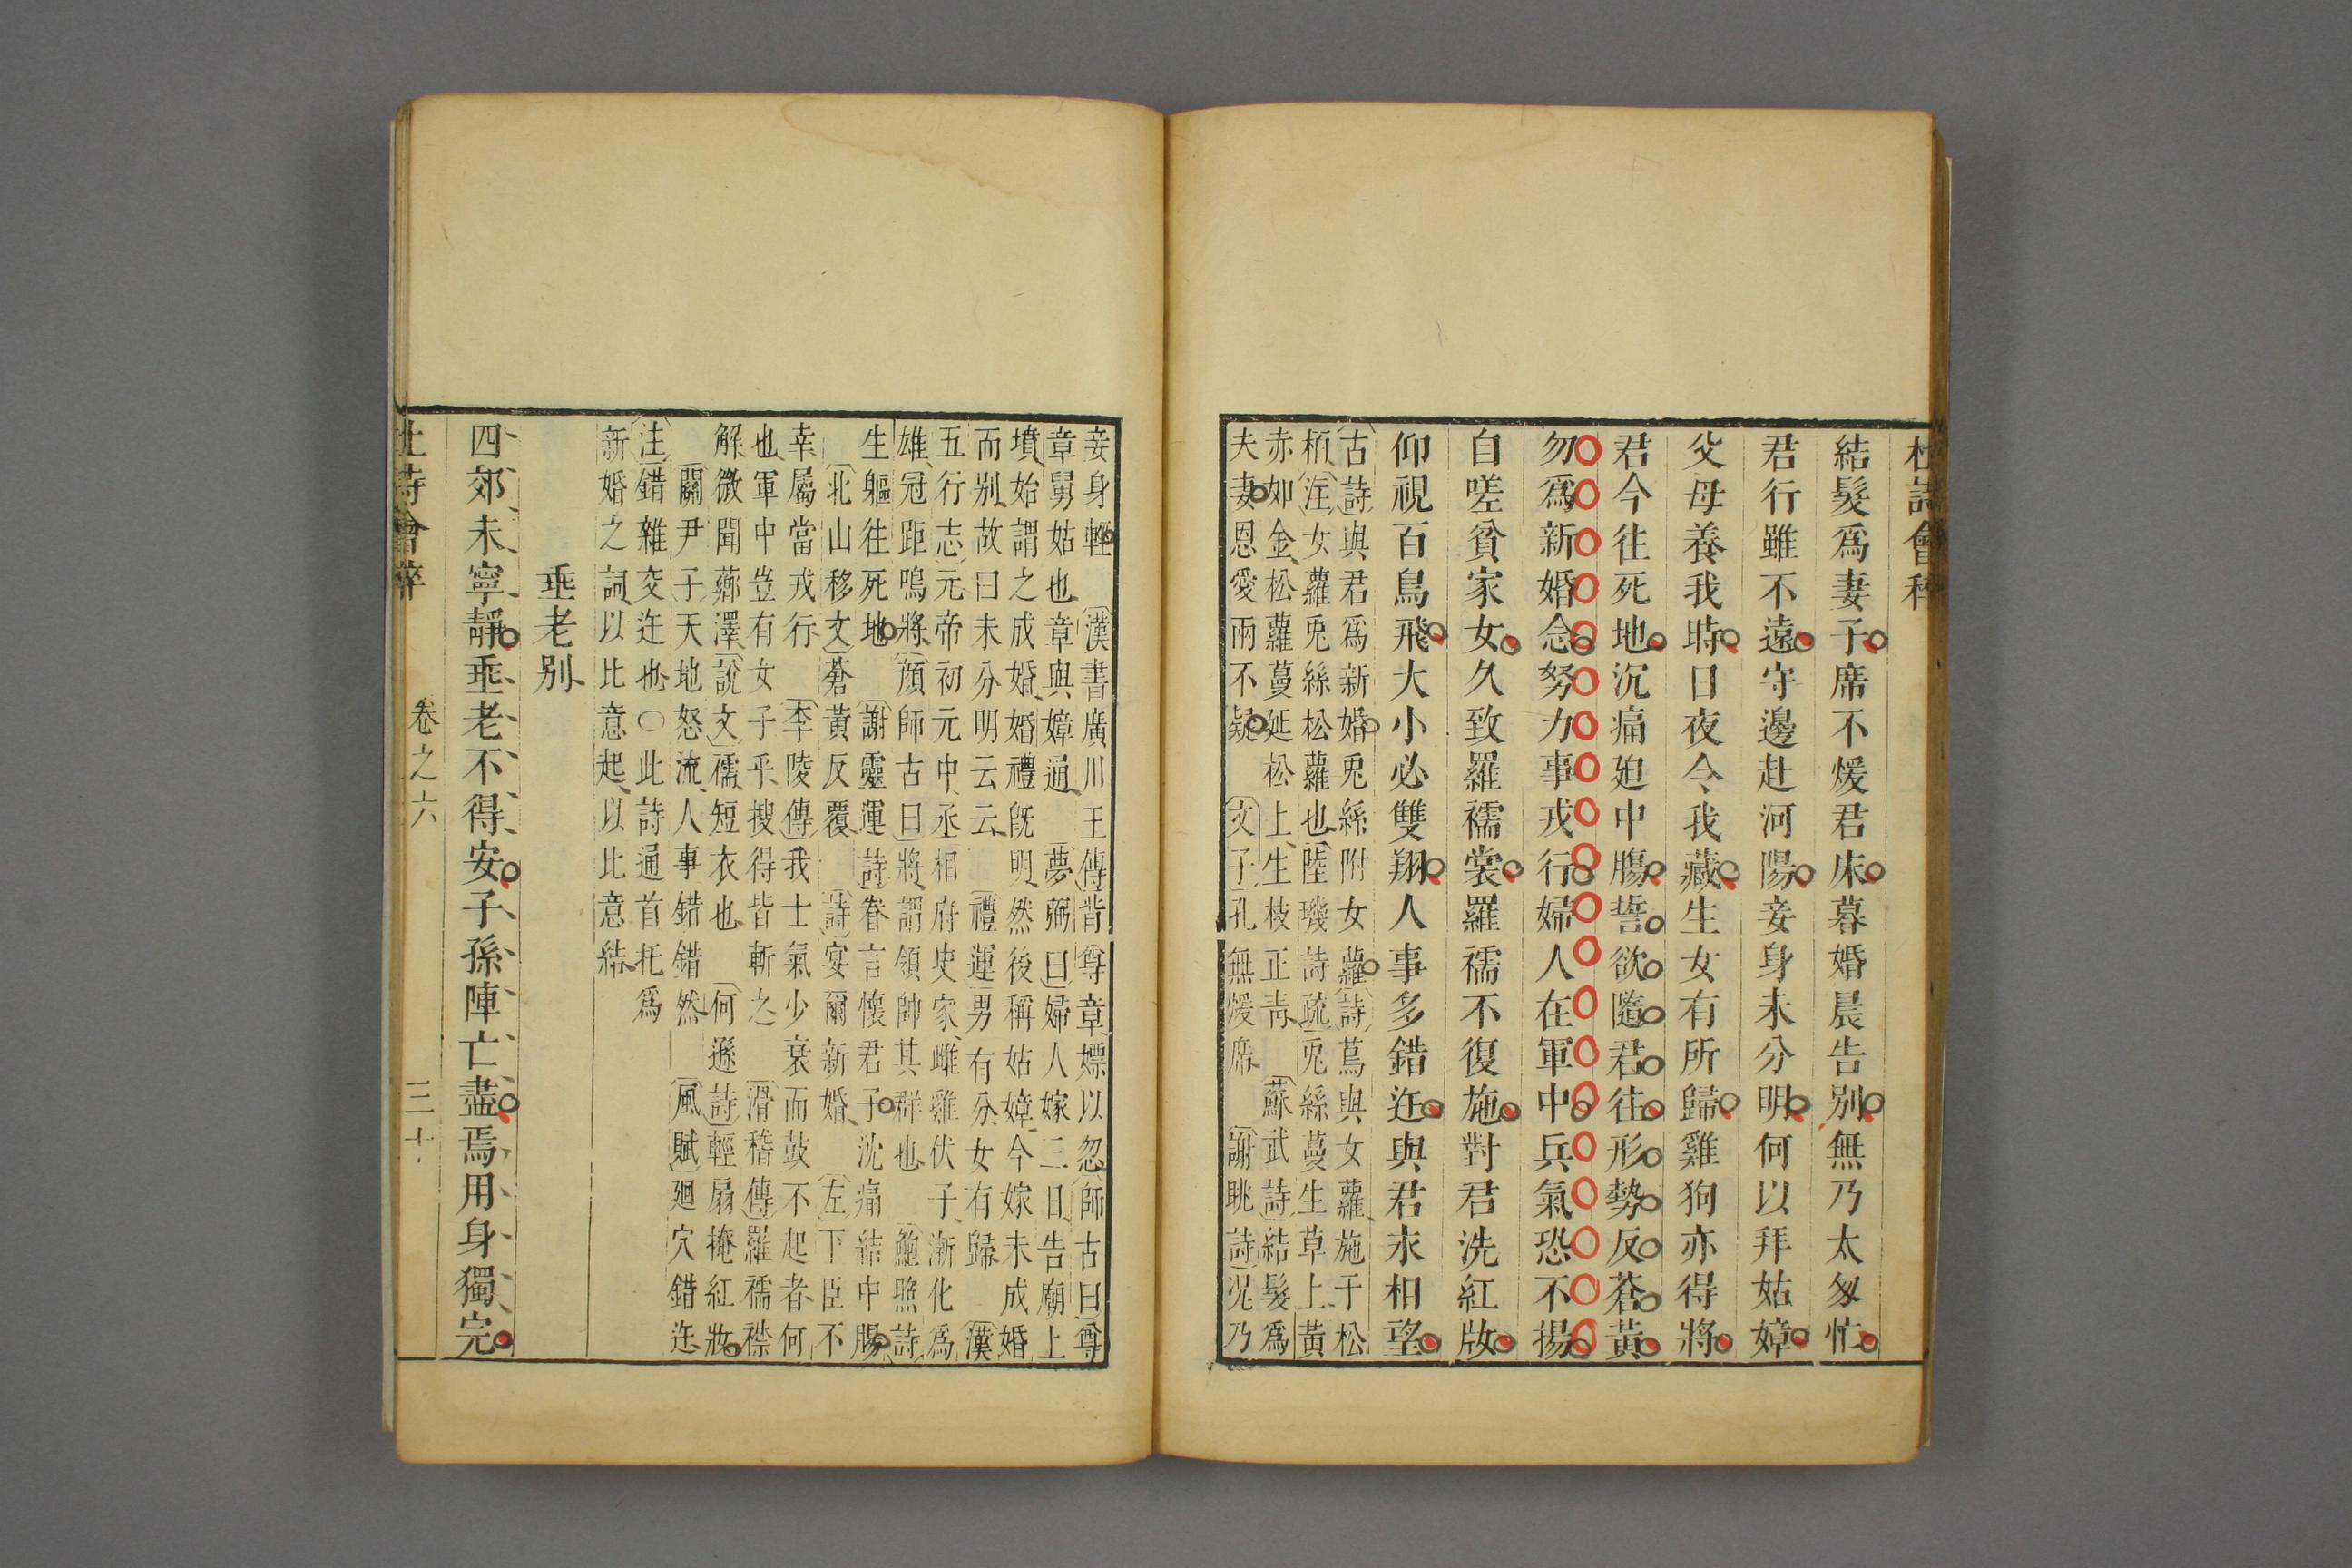 杜詩會稡
結髮爲妻子席不煖君床暮婚晨告別無乃太匆忙
君行雖不遠守邊赴河陽妾身未分明何以拜姑嫜
父母養我時日夜令我藏生女有所歸雞狗亦得將
君今往死地沉痛廹中腸誓欲隨君往形勢反蒼黃
勿爲新婚念努力事戎行婦人在軍中兵氣恐不揚
自嗟貧家女久致羅襦裳羅襦不復施對君洗紅粧
仰視百鳥飛大小必雙翔人事多錯迕與君永相望
古詩與君爲新婚兎絲附女蘿詩蔦與女蘿施于松
栢注女蘿兎絲松蘿也陸璣詩疏兎絲蔓生草上黃
赤如金松蘿蔓延松上生枝正靑 蘇武詩結髮爲
夫妻恩愛兩不疑 文子孔無煖席 謝眺詩況乃
妾身輕 漢書廣川王傳背尊章嫖以忽師古曰尊
章舅姑也章與嫜通 夢弼曰婦人嫁三日告廟上
墳始謂之成婚婚禮旣明然後稱姑嫜今嫁未成婚
而別故曰未分明云云 禮運男有分女有歸 漢
五行志元帝初元中丞相府史家雌雞伏子漸化爲
雄冠距鳴將顔師古曰將謂領帥其群也 鮑照詩
生軀往死地 謝靈運詩眷言懷君子沈痛結中腸
北山移文蒼黃反覆 詩宴爾新婚 左下臣不
幸屬當戎行 李陵傳我士氣少衰而鼓不起者何
也軍中豈有女子乎搜得皆斬之 滑稽傳羅襦襟
解微聞薌澤說文襦短衣也 何遜詩輕扇掩紅粧
關尹子天地怒流人事錯錯然 風賦廻穴錯迕
注錯雜交迕也○此詩通首托爲
新婚之詞以比意起以比意結
垂老別
四郊未寧靜垂老不得安子孫陣亡盡焉用身獨完
杜詩會稡 卷之六 三十